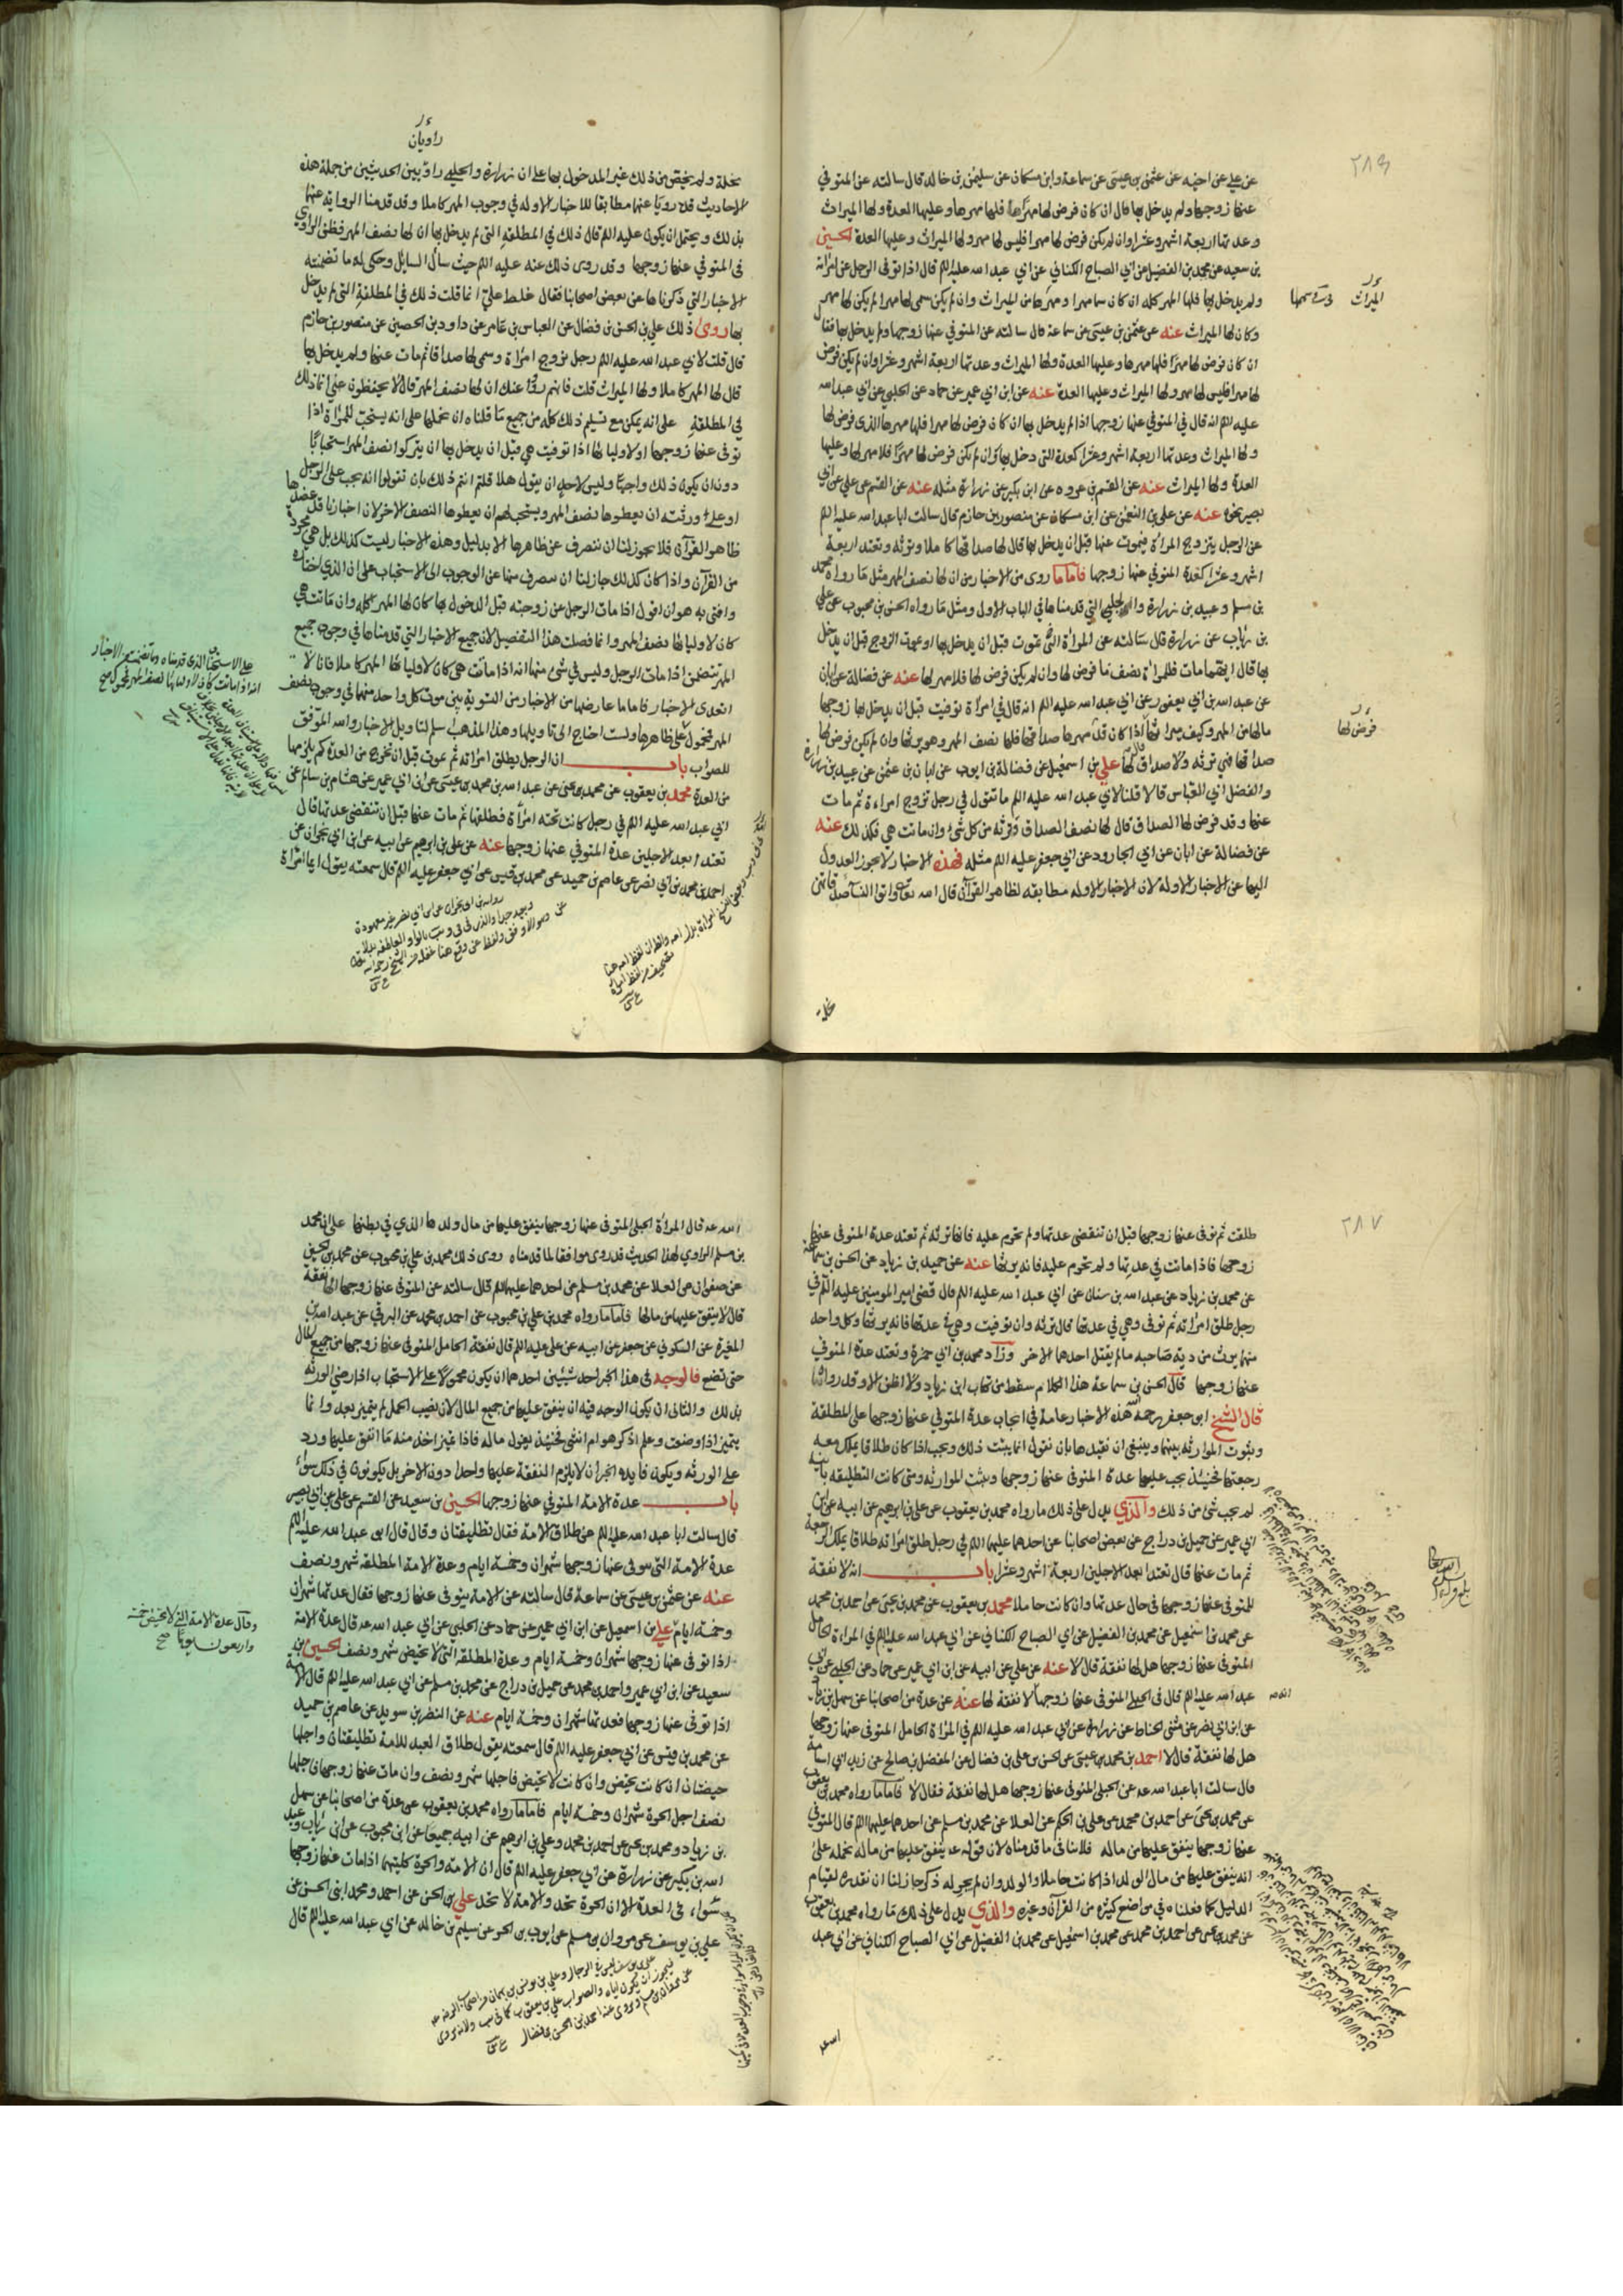 ٢٨٦
عن علي عن اخيه عن عثمن بن عيسى عن سماعة وابن مسكان عن سليمن بن خالد قال سالته عن المتوفي
عنها زوجها ولم يدخل بها قال ان كان فرض لها مهرا فلها مهرها وعليها العدة ولها الميراث
وعدتها اربعة اشهر وعشرا وان لم يكن فرض لها مهرا فليس لها مهر ولها الميراث وعليها العدة الحسين
بن سعيد عن محمد بن الفضيل عن ابي الصباح الكناني عن ابي عبد الله عليه الم قال اذا توفى الرجل عن امراته
ولم يدخل بها فلها المهر كله ان كان سما مهرا ومهرها من الميراث وان لم يكن سمى لها مهرا لم يكن لها مهر
وكان لها الميراث عنه عن عثمن بن عيسى عن سماعة قال سالته عن المتوفي عنها زوجها ولم يدخل بها فقال
ان كان فرض لها مهرا فلها مهرها وعليها العدة ولها الميراث وعدتها اربعة اشهر وعشرا وان لم يكن فرض
لها مهرا فليس لها مهر ولها الميراث وعليها العدة عنه عن ابن ابي عمير عن حماد عن الحلبي عن ابي عبد الله
عليه الم انه قال في المتوفي عنها زوجها اذا لم يدخل بها ان كان فرض لها مهرا فلها مهرها الذي فرض لها
ولها الميراث وعدتها اربعة اشهر وعشرا كعدة التي دخل بها وان لم يكن فرض لها مهرا فلا مهر لها وعليها
العدة ولها الميراث عنه عن القسم بن عروه عن ابن بكير عن زرارة مثله عنه عن القسم عن علي عن ابي
بصير نحوه عنه عن علي بن النعمن عن ابن مسكان عن منصور بن حازم قال سالت ابا عبد الله عليه الم
عن الرجل يتزوج المراة فيموت عنها قبل ان يدخل بها قال لها صداقها كاملا وترثه وتعتد اربعة
اشهر وعشرا كعدة المتوفي عنها زوجها فاما ما روى من الاخبار من ان لها نصف المهر مثل ما رواه محمد
بن مسلم وعبيد بن زرارة والحلبي التي قدمناها في الباب الاول ومثل ما رواه الحسن بن محبوب عن علي
بن رئاب عن زرارة قال سالته عن المراة تموت قبل ان يدخل بها او يموت الزوج قبل ان يدخل
بها قال ايهما مات فللمراة نصف ما فرض لها وان لم يكن فرض لها فلا مهر لها عنه عن فضالة عن ابان
عن عبد الله بن ابي يعفور عن ابي عبد الله عليه الم انه قال في امراة توفيت قبل ان يدخل بها زوجها
مالها من المهر وكيف ميراثها اذا كان قد مهرها صداقها فلها نصف المهر وهو يرثها وان لم يكن فرض لها
صداقها فهي ترثه ولا صداق لها علي بن اسمعيل عن فضالة بن ايوب عن ابان بن عثمن عن عبيد بن زرارة
والفضل ابي العباس قالا قلنا لابي عبد الله عليه الم ما تقول في رجل تزوج امراءة ثم مات
عنها وقد فرض لها الصداق قال لها نصف الصداق وترثه من كل شئ وان ماتت هي فكذلك عنه
عن فضالة عن ابان عن ابي الجارود عن ابي جعفر عليه الم مثله فهذه الاخبار لا يجوز العدول
اليها عن الاخبار الاوله لان الاخبار الاوله مطابقه لظاهر القرآن قال الله تعالى واتوا النسآ صدقاتهن
نحلة
الميراث
فرض لها
راويان
نحلة ولم يخص من ذلك غير المدخول بها على ان زرارة والحلبي راويين الحديثين من جملة هذه
الاحاديث قد رويا عنها مطابقا للاخبار الاوله في وجوب المهر كاملا وقد قدمنا الرواية عنها
بذلك ويحتمل ان يكون عليه الم قال ذلك في المطلقة التي لم يدخل بها ان لها نصف المهر فظن الراوي
في المتوفي عنها زوجها وقد روى ذلك عنه عليه الم حيث سال السايل وحكى له ما تضمنته
الاخبار التي ذكرناها عن بعض اصحابنا فقال غلط علي انما قلت ذلك في المطلقة التي لم يدخل
بها روى ذلك علي بن الحسن بن فضال عن العباس بن عامر عن داود بن الحصين عن منصور بن حازم
قال قلت لابي عبد الله عليه الم رجل تزوج امراة وسمى لها صداقا ثم مات عنها ولم يدخل بها
قال لها المهر كاملا ولها الميراث قلت فانهم رووا عنك ان لها نصف المهر قال لا يحفظون عني انما ذلك
في المطلقة على انه يمكن مع تسليم ذلك كله من جميع ما قلناه ان نحملها على انه يستحب للمراة اذا
توفى عنها زوجها او لاوليائها اذا توفيت هي قبل ان يدخل بها ان يتركوا نصف المهر استحبابا
دون ان يكون ذلك واجبا وليس لاحد ان يقول هلا قلتم انتم ذلك بان تقولوا انه يجب على الرجل
او على ورثته ان يعطوها نصف المهر ويستحب لهم ان يعطوها النصف الاخر لان اخبارنا قد عضدها
ظاهر القرآن فلا يجوز لنا ان ننصرف عن ظاهرها الا بدليل وهذه الاخبار ليست كذلك بل هي مجردة
من القرآن واذا كان كذلك جاز لنا ان ننصرف بها عن الوجوب الى الاستحباب على ان الذي اختاره
وافتى به هو ان اقول اذا مات الرجل عن زوجته قبل الدخول بها كان لها المهر كله وان ماتت هي
كان لاوليائها نصف المهر وانما فصلت هذا التفصيل لان جميع الاخبار التي قدمناها في وجوب جميع
المهر تتضمن اذا مات الرجل وليس في شئ منها انه اذا ماتت هي كان لاوليائها المهر كاملا فانا لا
اتعدى الاخبار فاما ما عارضها من الاخبار من التسوية بين موت كل واحد منهما في وجوب نصف
المهر فمحمول على ظاهرها ولست احتاج الى تاويلها وهذا المذهب اسلم لتاويل الاخبار والله الموفق
للصواب باب ان الرجل يطلق امراته ثم يموت قبل ان تخرج من العدة كم يلزمها
من العدة محمد بن يعقوب عن محمد بن يحيى عن عبد الله بن محمد بن عيسى عن ابن ابي عمير عن هشام بن سالم عن
ابي عبد الله عليه الم في رجل كانت تحته امراة فطلقها ثم مات عنها قبل ان تنقضي عدتها قال
تعتد ابعد الاجلين عدة المتوفي عنها زوجها عنه عن علي بن ابرهيم عن ابيه عن ابن ابي نجران عن
احمد بن محمد بن ابي نصر عن عاصم بن حميد عن محمد بن قيس عن ابي جعفر عليه الم قال سمعته يقول ايما امراة
٢٨٧
طلقت ثم توفى عنها زوجها قبل ان تنقضي عدتها ولم تحرم عليه فانها ترثه ثم تعتد عدة المتوفى عنها
زوجها فاذا ماتت في عدتها ولم تحرم عليه فانه يرثها عنه عن حميد بن زياد عن الحسن بن سماعة
عن محمد بن زياد عن عبد الله بن سنان عن ابي عبد الله عليه الم قال قضى امير المومنين عليه الم في
رجل طلق امراته ثم توفى وهي في عدتها قال ترثه وان توفيت وهي في عدتها فانه يرثها وكل واحد
منهما يرث من دية صاحبه ما لم يقتل احدهما الاخر وزاد محمد بن ابي حمزة وتعتد عدة المتوفي
عنها زوجها قال الحسن بن سماعة هذا الكلام سقط من كتاب ابن زياد ولا اظن الا وقد رواه
قال الشيخ ابو جعفر رحمه الله هذه الاخبار عامة في ايجاب عدة المتوفي عنها زوجها على المطلقة
وثبوت الموارثه بينهما وينبغي ان نقيدها بان نقول انما يثبت ذلك ويجب اذا كان طلاقا يملك معه
رجعتها فحينئذ يجب عليها عدة المتوفى عنها زوجها ويثبت الموارثه ومتى كانت التطليقه باينه
لم يجب شئ من ذلك والذي يدل على ذلك ما رواه محمد بن يعقوب عن علي بن ابراهيم عن ابيه عن ابن
ابي عمير عن جميل بن دراج عن بعض اصحابنا عن احدهما عليهما الم في رجل طلق امراته طلاقا يملك الرجعة
ثم مات عنها قال تعتد ابعد الاجلين اربعة اشهر وعشرا باب انه لا نفقة
للمتوفى عنها زوجها في حال عدتها وان كانت حاملا محمد بن يعقوب عن محمد بن يحيى عن احمد بن محمد
عن محمد بن اسمعيل عن محمد بن الفضيل عن ابي الصباح الكناني عن ابي عبد الله عليه الم في المراة الحامل
المتوفى عنها زوجها هل لها نفقة قال لا عنه عن علي عن ابيه عن ابن ابي عمير عن حماد عن الحلبي عن ابي
عبد الله عليه الم قال في الحبلى المتوفى عنها زوجها لا نفقة لها عنه عن عدة من اصحابنا عن سهل بن زياد
عن ابن ابي نصر عن مثنى الحناط عن زرارة عن ابي عبد الله عليه الم في المراة الحامل المتوفى عنها زوجها
هل لها نفقة قال لا احمد بن محمد بن عيسى عن الحسن بن علي بن فضال عن المفضل بن صالح عن زيد ابي اسامة
قال سالت ابا عبد الله عه عن الحبلى المتوفى عنها زوجها هل لها نفقة فقال لا فاما ما رواه محمد بن يعقوب
عن محمد بن يحيى عن احمد بن محمد عن علي بن الحكم عن العلا عن محمد بن مسلم عن احدهما عليهما الم قال المتوفي
عنها زوجها ينفق عليها من ماله فلا ينافى ما قدمناه لان قوله عه ينفق عليها من ماله نحمله على
انه ينفق عليها من مال الولد اذا كانت حاملا والولد وان لم يجر له ذكر جاز لنا ان نقدره لقيام
الدليل كما فعلناه في مواضع كثيره من القرآن وغيره والذي يدل على ذلك ما رواه محمد بن يعقوب
عن محمد بن يحيى عن احمد بن محمد عن محمد بن اسمعيل عن محمد بن الفضيل عن ابي الصباح الكناني عن ابي عبد
الله عه
الله عه قال المراة الحبلى المتوفى عنها زوجها ينفق عليها من مال ولدها الذي في بطنها على ان محمد
بن مسلم الراوي لهذا الحديث قد روى موافقا لما قدمناه روى ذلك محمد بن علي بن محبوب عن محمد بن الحسين
عن صفوان عن العلا عن محمد بن مسلم عن احدهما عليهما الم قال سالته عن المتوفى عنها زوجها الها نفقة
قال لا ينفق عليها من مالها فاما ما رواه محمد بن علي بن محبوب عن احمد بن محمد عن البرقي عن عبد الله بن
المغيرة عن السكوني عن جعفر عن ابيه عن علي عليه الم قال نفقة الحامل المتوفى عنها زوجها من جميع المال
حتى تضع فالوجه في هذا الخبر احد شيئين احدهما ان يكون محمولا على الاستحباب اذا رضي الورثه
بذلك والثاني ان يكون الوجه فيه ان ينفق عليها من جميع المال لان نصيب الحمل لم يتميز بعد وانما
يتميز اذا وضعت وعلم اذكر هو ام انثى فحينئذ يعزل ماله فاذا تميز اخذ منه ما انفق عليها ورد
على الورثه ويكون فايده الخبر ان لا يلزم النفقة عليها واحدا دون الاخر بل يكونون في ذلك سواء
باب عدة الامة المتوفي عنها زوجها الحسين بن سعيد عن القسم عن علي عن ابي بصير
قال سالت ابا عبد الله عليه الم عن طلاق الامة فقال تطليقتان وقال قال ابو عبد الله عليه الم
عدة الامة التي يتوفى عنها زوجها شهران وخمسة ايام وعدة الامة المطلقه شهر ونصف
عنه عن عثمن بن عيسى عن سماعة قال سالته عن الامة يتوفى عنها زوجها فقال عدتها شهران
وخمسة ايام علي بن اسمعيل عن ابن ابي عمير عن حماد عن الحلبي عن ابي عبد الله عه قال عدة الامة
اذا توفى عنها زوجها شهران وخمسة ايام وعدة المطلقه التي لا تحيض شهر ونصف الحسين بن
سعيد عن ابن ابي عمير واحمد بن محمد عن جميل بن دراج عن محمد بن مسلم عن ابي عبد الله عليه الم قال الامة
اذا توفى عنها زوجها فعدتها شهران وخمسة ايام عنه عن النضر بن سويد عن عاصم بن حميد
عن محمد بن قيس عن ابي جعفر عليه الم قال سمعته يقول طلاق العبد للامة تطليقتان واجلها
حيضتان ان كانت تحيض وان كانت لا تحيض فاجلها شهر ونصف وان مات عنها زوجها فاجلها
نصف اجل الحرة شهران وخمسة ايام فاما ما رواه محمد بن يعقوب عن عدة من اصحابنا عن سهل
بن زياد ومحمد بن يحيى عن احمد بن محمد وعلي بن ابرهيم عن ابيه جميعا عن ابن محبوب عن ابن رئاب وعبد
الله بن بكير عن زرارة عن ابي جعفر عليه الم قال ان الامه والحرة كلتيهما اذا مات عنها زوجها
سواء في العدة الا ان الحرة تحد والامة لا تحد علي بن الحسن عن احمد ومحمد ابني الحسن عن
علي بن يوسف عن مروان بن مسلم عن ايوب بن الحر عن سليم بن خالد عن ابي عبد الله عليه الم قال
وقال عدة الامة التي لا تحيض خمسة
واربعون يوما صح